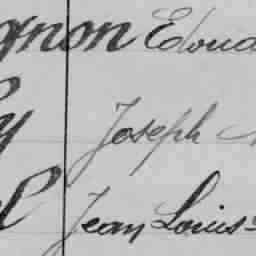 gnon Edoua
y Joseph
l Jean Louis